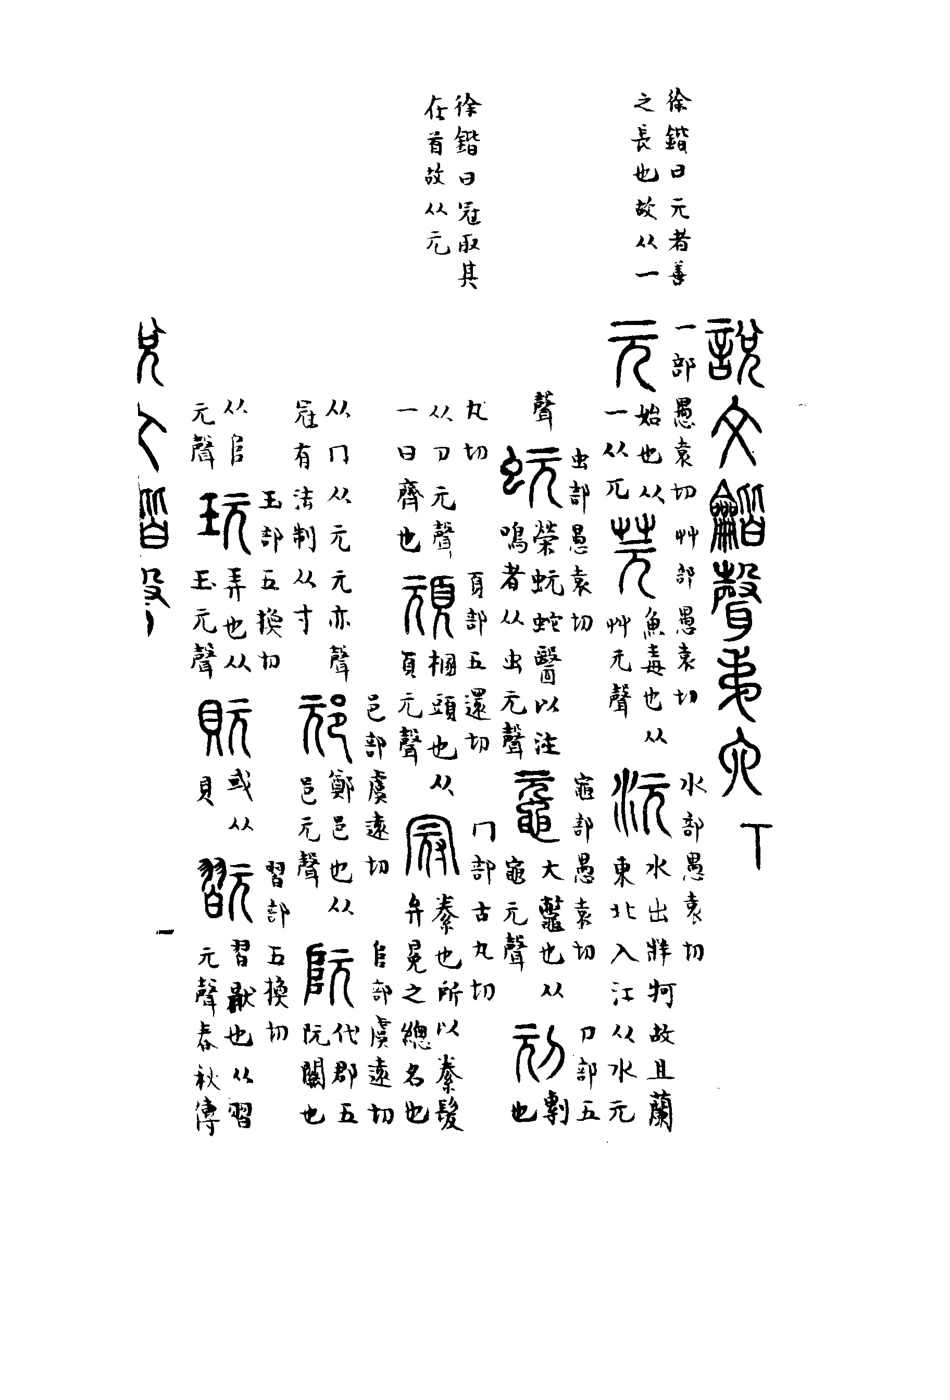 徐鍇曰元者善
之長也故从一
徐鍇曰冠取其
在首故从元
說文龤聲弟六丅
元 一部愚袁切 始也从一从兀
芫 艸部愚袁切 魚毒也从艸元聲
沅 水部愚袁切 水出牂牁故且蘭東北入江从水元聲
蚖 虫部愚袁切 榮蚖蛇醫以注鳴者从虫元聲
黿 黽部愚袁切 大鼈也从黽元聲
刓 刀部五丸切 剸也从刀元聲一曰齊也
頑 頁部五還切 梱頭也从頁元聲
冠 冂部古丸切 絭也所以絭髮弁冕之總名也从冂从元元亦聲冠有法制从寸
邧 邑部虞遠切 鄭邑也从邑元聲
阮 𨸏部虞遠切 代郡五阮關也从𨸏元聲
玩 玉部五換切 弄也从玉元聲
貦 或从貝
翫 習部五換切 習猒也从習元聲春秋傳
一